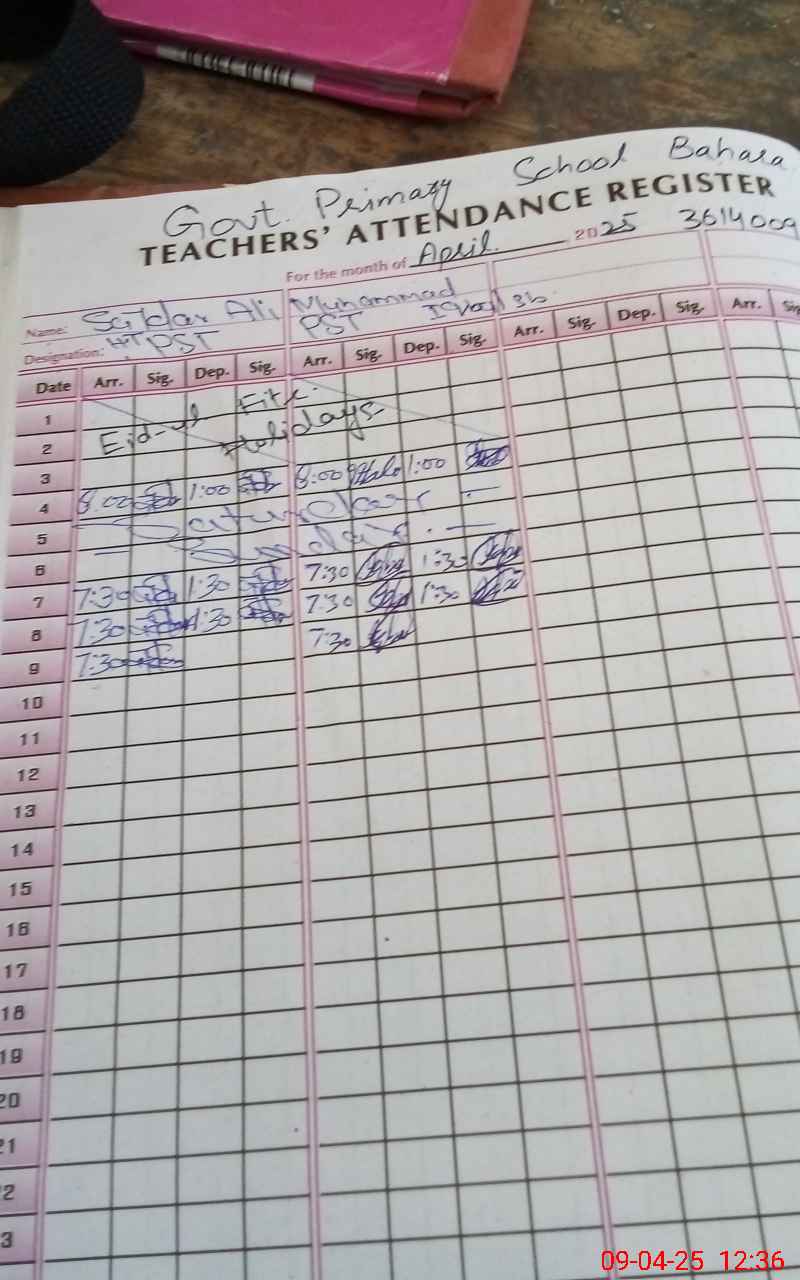 Govt. Primary School Bahara
TEACHERS' ATTENDANCE REGISTER
For the month of April 2025 3614009
Name: Ali Muhammad
Designation: HT PST PST
Date Arr. Sig. Dep. Sig. Arr. Sig. Dep. Sig. Arr. Sig. Dep. Sig. Arr.
1 Eid-ul Fitr.
2 Holidays
3
4 8:00 1:00 8:00 1:00
5 Saturday
6 Sunday
7 7:30 1:30 7:30 1:30
8 7:30 1:30 7:30 1:30
9 7:30 7:30
10
11
12
13
14
15
16
17
18
19
20
21
2
3
09-04-25 12:36